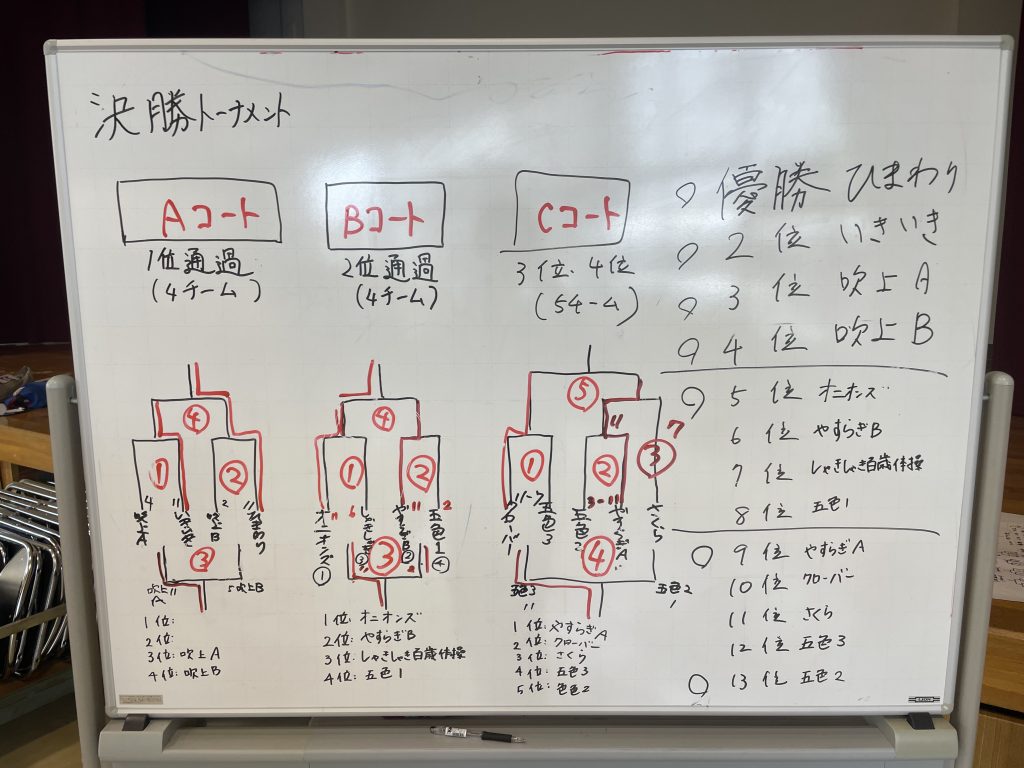 決勝トーナメント
Aコート
1位通過
(4チーム)
Bコート
2位通過
(4チーム)
Cコート
3位、4位
(5チーム)
④
① ②
4 11 2 11
吹上A いきいき 吹上B ひまわり
③
吹上A 11 5 吹上B
1位:
2位:
3位:吹上A
4位:吹上B
④
① ②
11 6 11 2
オニオンズ① しゃきしゃき③ やすらぎB② 五色1④
③
1位:オニオンズ
2位:やすらぎB
3位:しゃきしゃき百歳体操
4位:五色1
⑤
11 7
① ② ③
11-7 3-11
クローバー 五色3 五色2 やすらぎA さくら
④
五色3 五色2
11 1
1位:やすらぎA
2位:クローバー
3位:さくら
4位:五色3
5位:色色2
優勝 ひまわり
2位 いきいき
3位 吹上A
4位 吹上B
5位 オニオンズ
6位 やすらぎB
7位 しゃきしゃき百歳体操
8位 五色1
9位 やすらぎA
10位 クローバー
11位 さくら
12位 五色3
13位 五色2